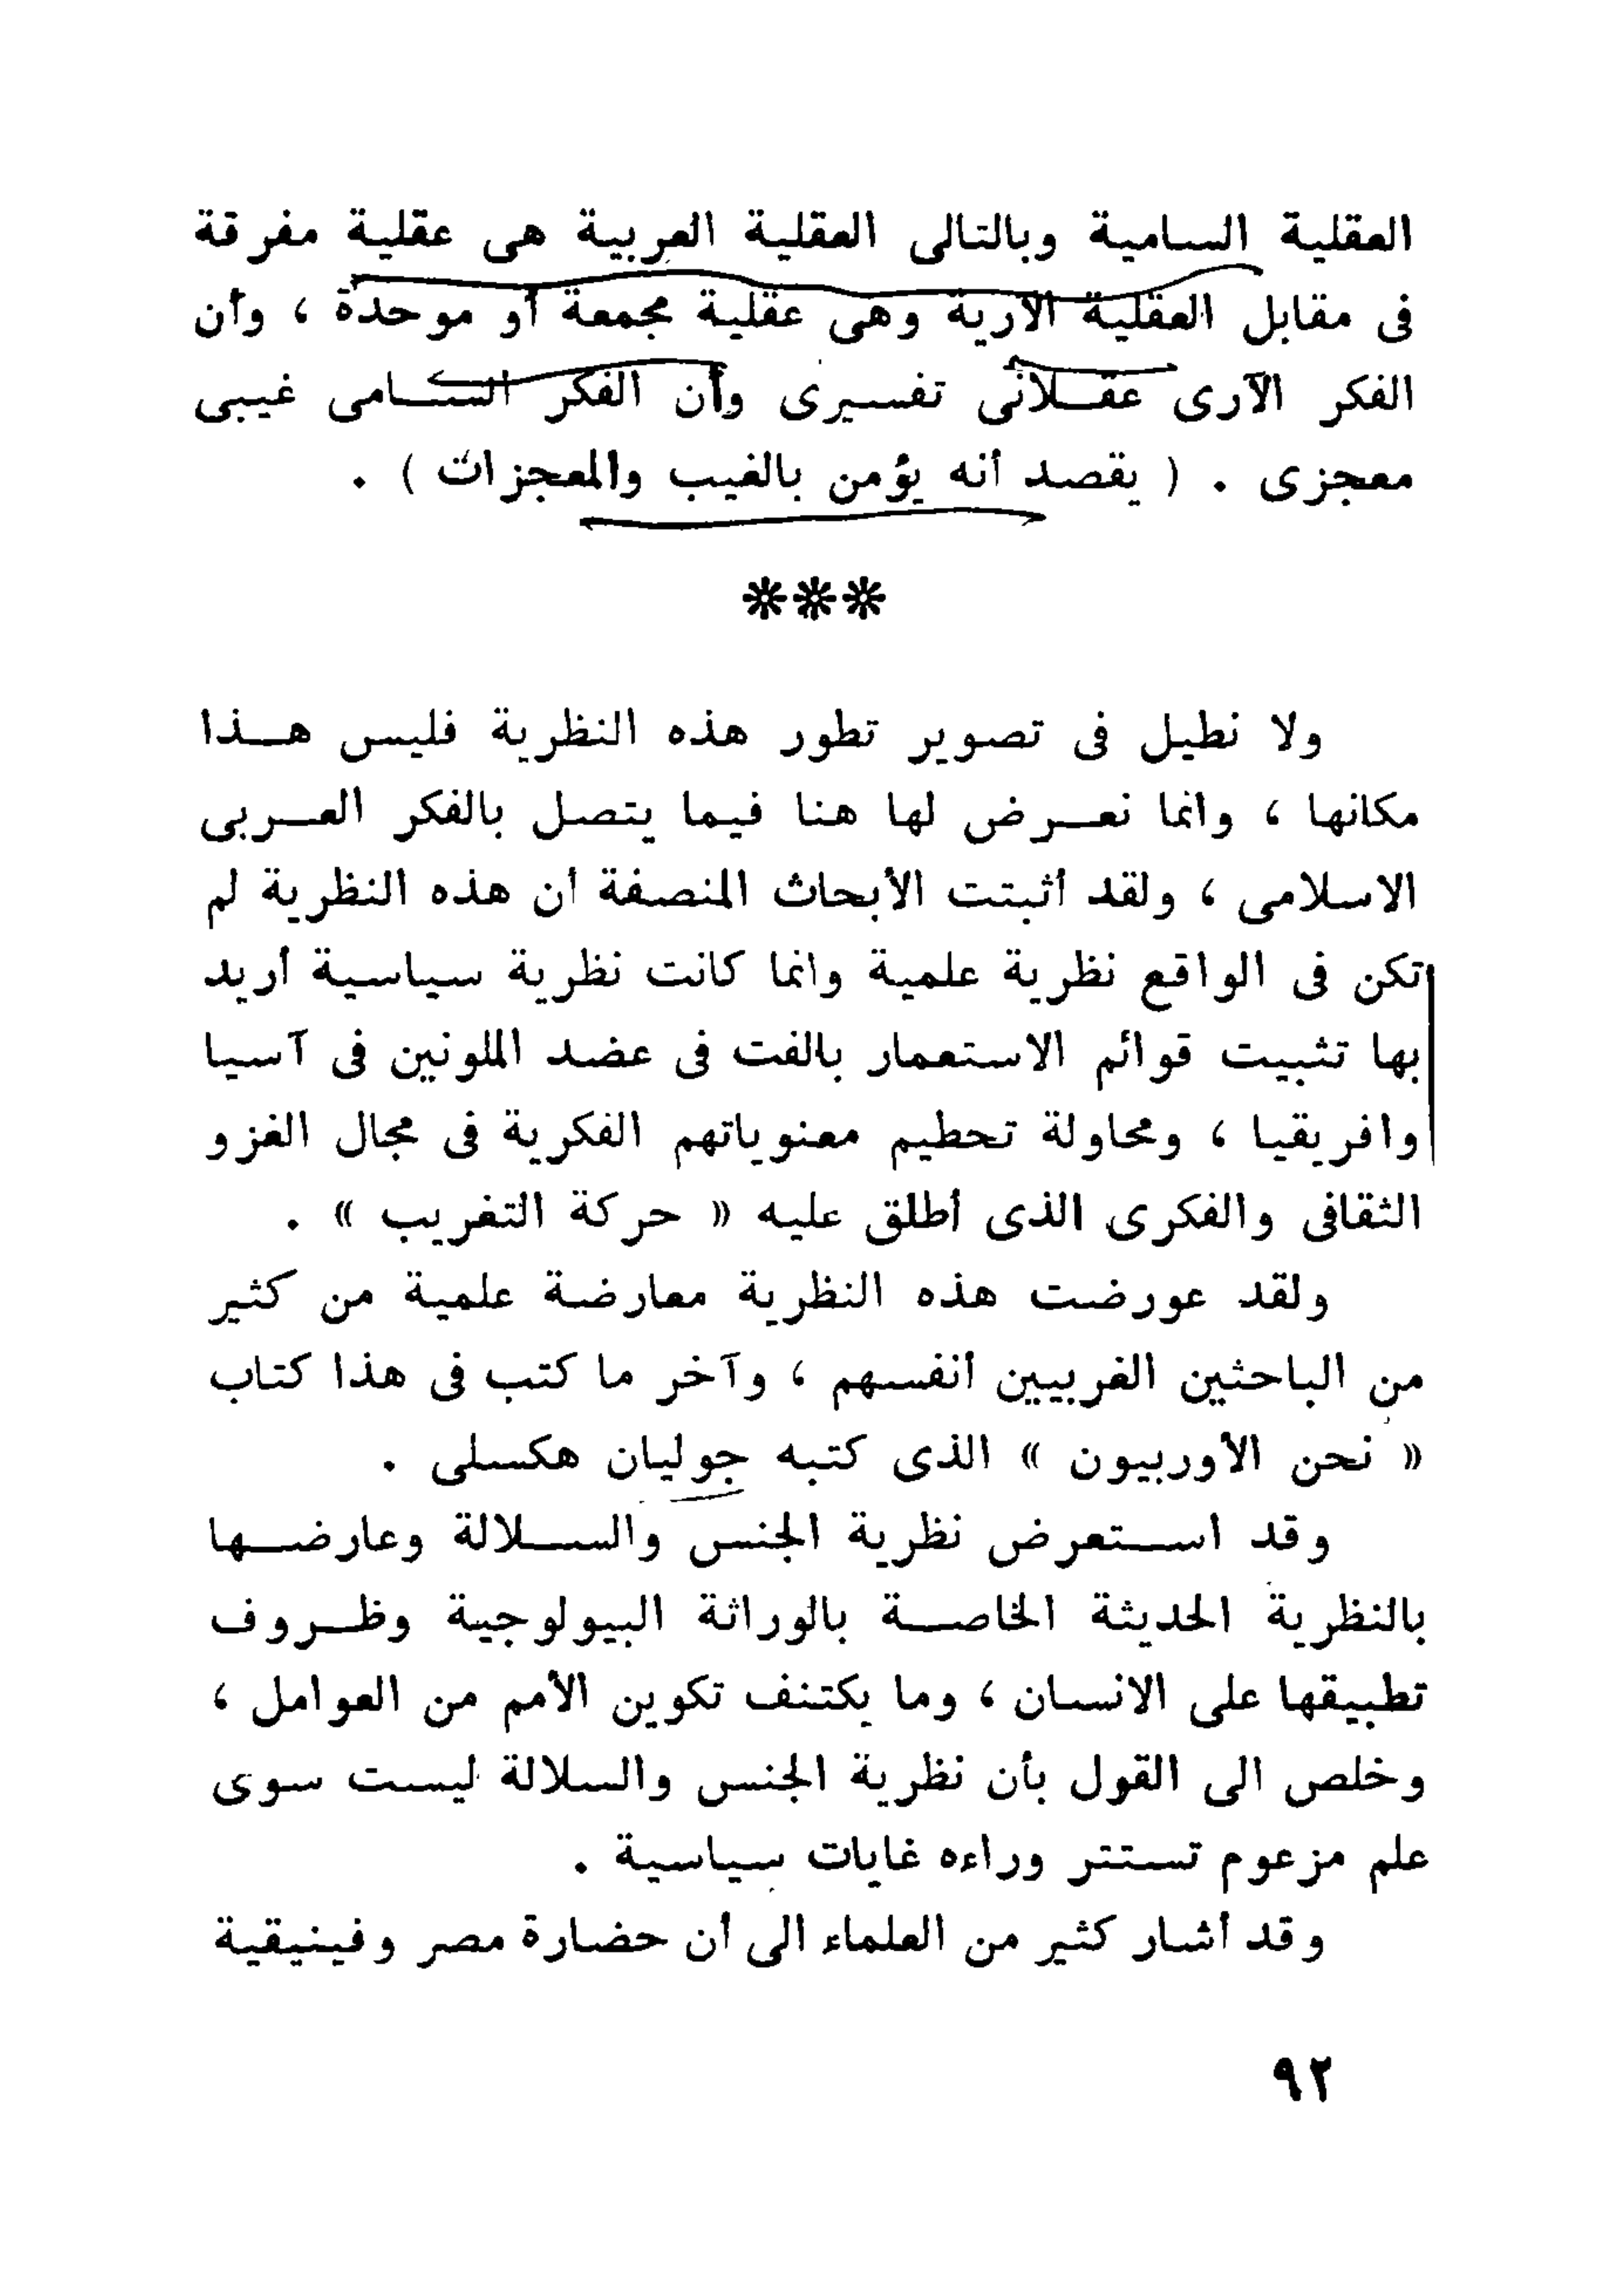 العقلية السامية وبالتالى العقلية العربية هى عقلية مفرقة
فى مقابل العقلية الآرية وهى عقلية مجمعة أو موحدة ، وأن
الفكر الآرى عقــلانى تفسيرى وأن الفكر الســامى غيبى
معجزى . ( يقصد أنه يؤمن بالغيب والمعجزات ) .
***
ولا نطيل فى تصوير تطور هذه النظرية فليس هــذا
مكانها ، وانما نعــرض لها هنا فيما يتصل بالفكر العــربى
الاسلامى ، ولقد أثبتت الأبحاث المنصفة أن هذه النظرية لم
تكن فى الواقع نظرية علمية وانما كانت نظرية سياسية أريد
بها تثبيت قوائم الاستعمار بالفت فى عضد الملونين فى آسيا
وافريقيا ، ومحاولة تحطيم معنوياتهم الفكرية فى مجال الغزو
الثقافى والفكرى الذى أطلق عليه « حركة التغريب » .
ولقد عورضت هذه النظرية معارضة علمية من كثير
من الباحثين الغربيين أنفسهم ، وآخر ما كتب فى هذا كتاب
« نحن الأوربيون » الذى كتبه جوليان هكسلى .
وقد اســتعرض نظرية الجنس والســلالة وعارضــها
بالنظرية الحديثة الخاصــة بالوراثة البيولوجية وظــروف
تطبيقها على الانسان ، وما يكتنف تكوين الأمم من العوامل ،
وخلص الى القول بأن نظرية الجنس والسلالة ليست سوى
علم مزعوم تستتر وراءه غايات سياسية .
وقد أشار كثير من العلماء الى أن حضارة مصر وفينيقية
٩٢